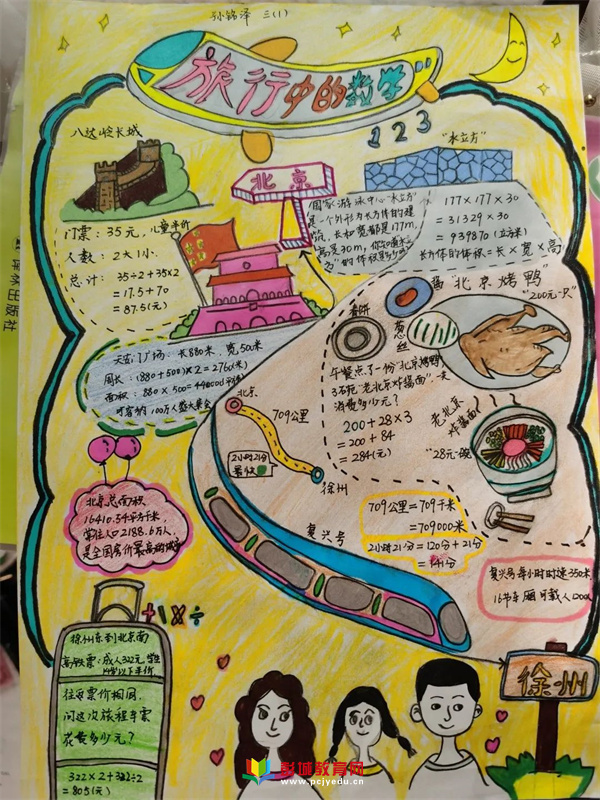 孙铭泽 三(1)
旅行中的数学
123
八达岭长城
门票：35元，儿童半价
人数：2大1小
总计：35÷2+35×2
=17.5+70
=87.5(元)
北京
"水立方"
国家游泳中心"水立方"
是一个外形为长方体的建
筑，长和宽都是177m，
高是30m，
177×177×30
=31329×30
=939870(立方米)
长方体的体积=长×宽×高
天安门广场：长880米，宽500米
周长：(880+500)×2=2760(米)
面积：880×500=440000平方米
可容纳100万人盛大集会
酱
葱丝
"北京烤鸭"
"200元一只"
午餐点了一份"北京烤鸭"
3石宛"老北京炸酱面"一共
消费多少元？
200+28×3
=200+84
=284(元)
老北京
炸酱面
"28元一碗"
北京
709公里
2小时21分
最快
徐州
复兴号
709公里=709千米
=709000米
2小时21分=120分+21分
=141分
复兴号每小时时速350米
16节车厢可载人1200人
北京总面积
16410.54平方千米，
常住人口2188.6万人
是全国房价最高的城市
+-×÷
徐州东到北京南
高铁票：成人322元，学生
14岁以下半价
往返票价相同，
问这次旅程车票
花费多少元？
322×2+322÷2
=805(元)
徐州
彭城教育网
www.pcjyedu.cn
译林出版社